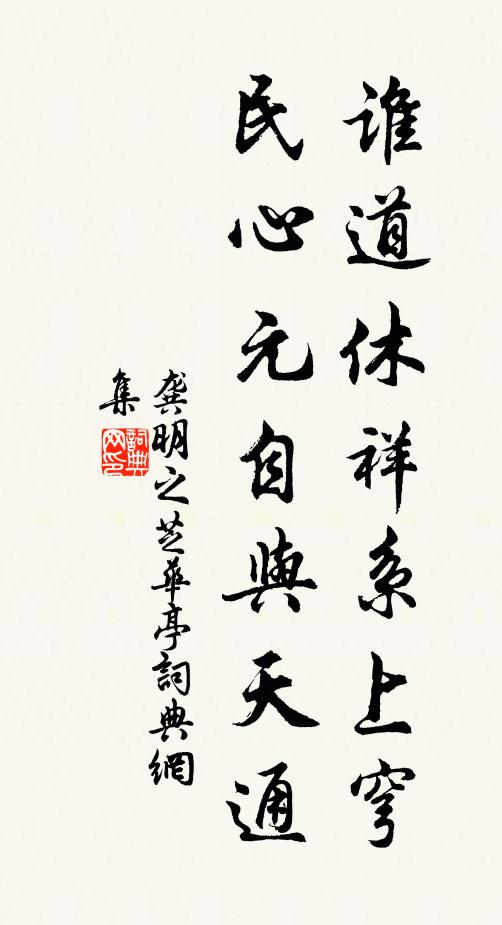 誰道休祥系上穹
民心元自與天通
龔明之芝華亭詞典網
集
詞典網印